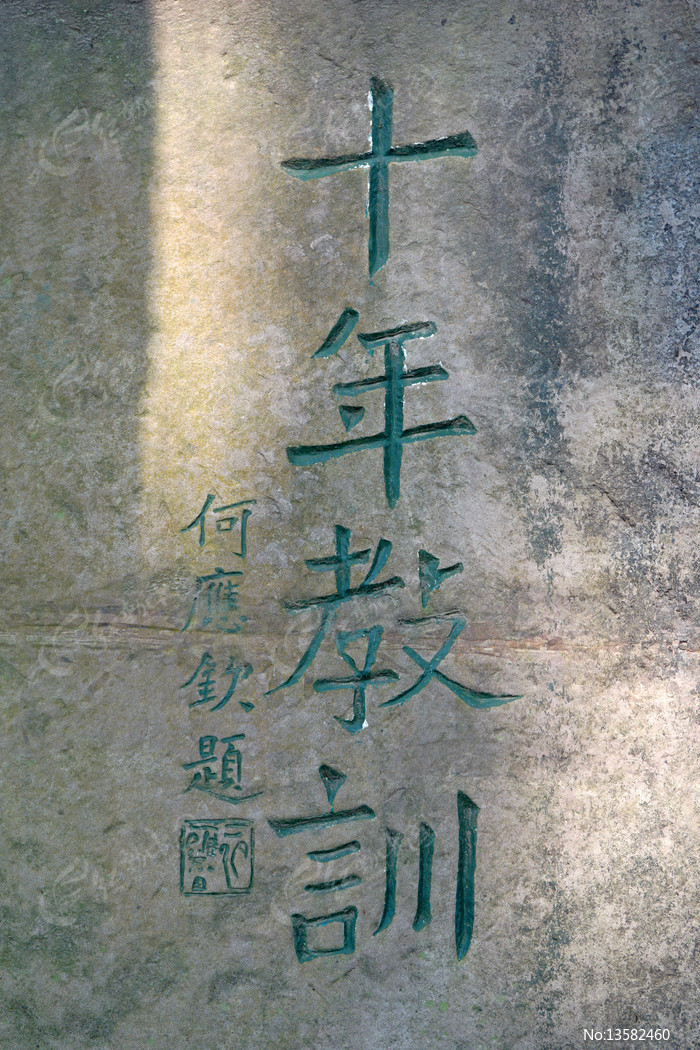 十年教訓
何應欽題
No:13582460